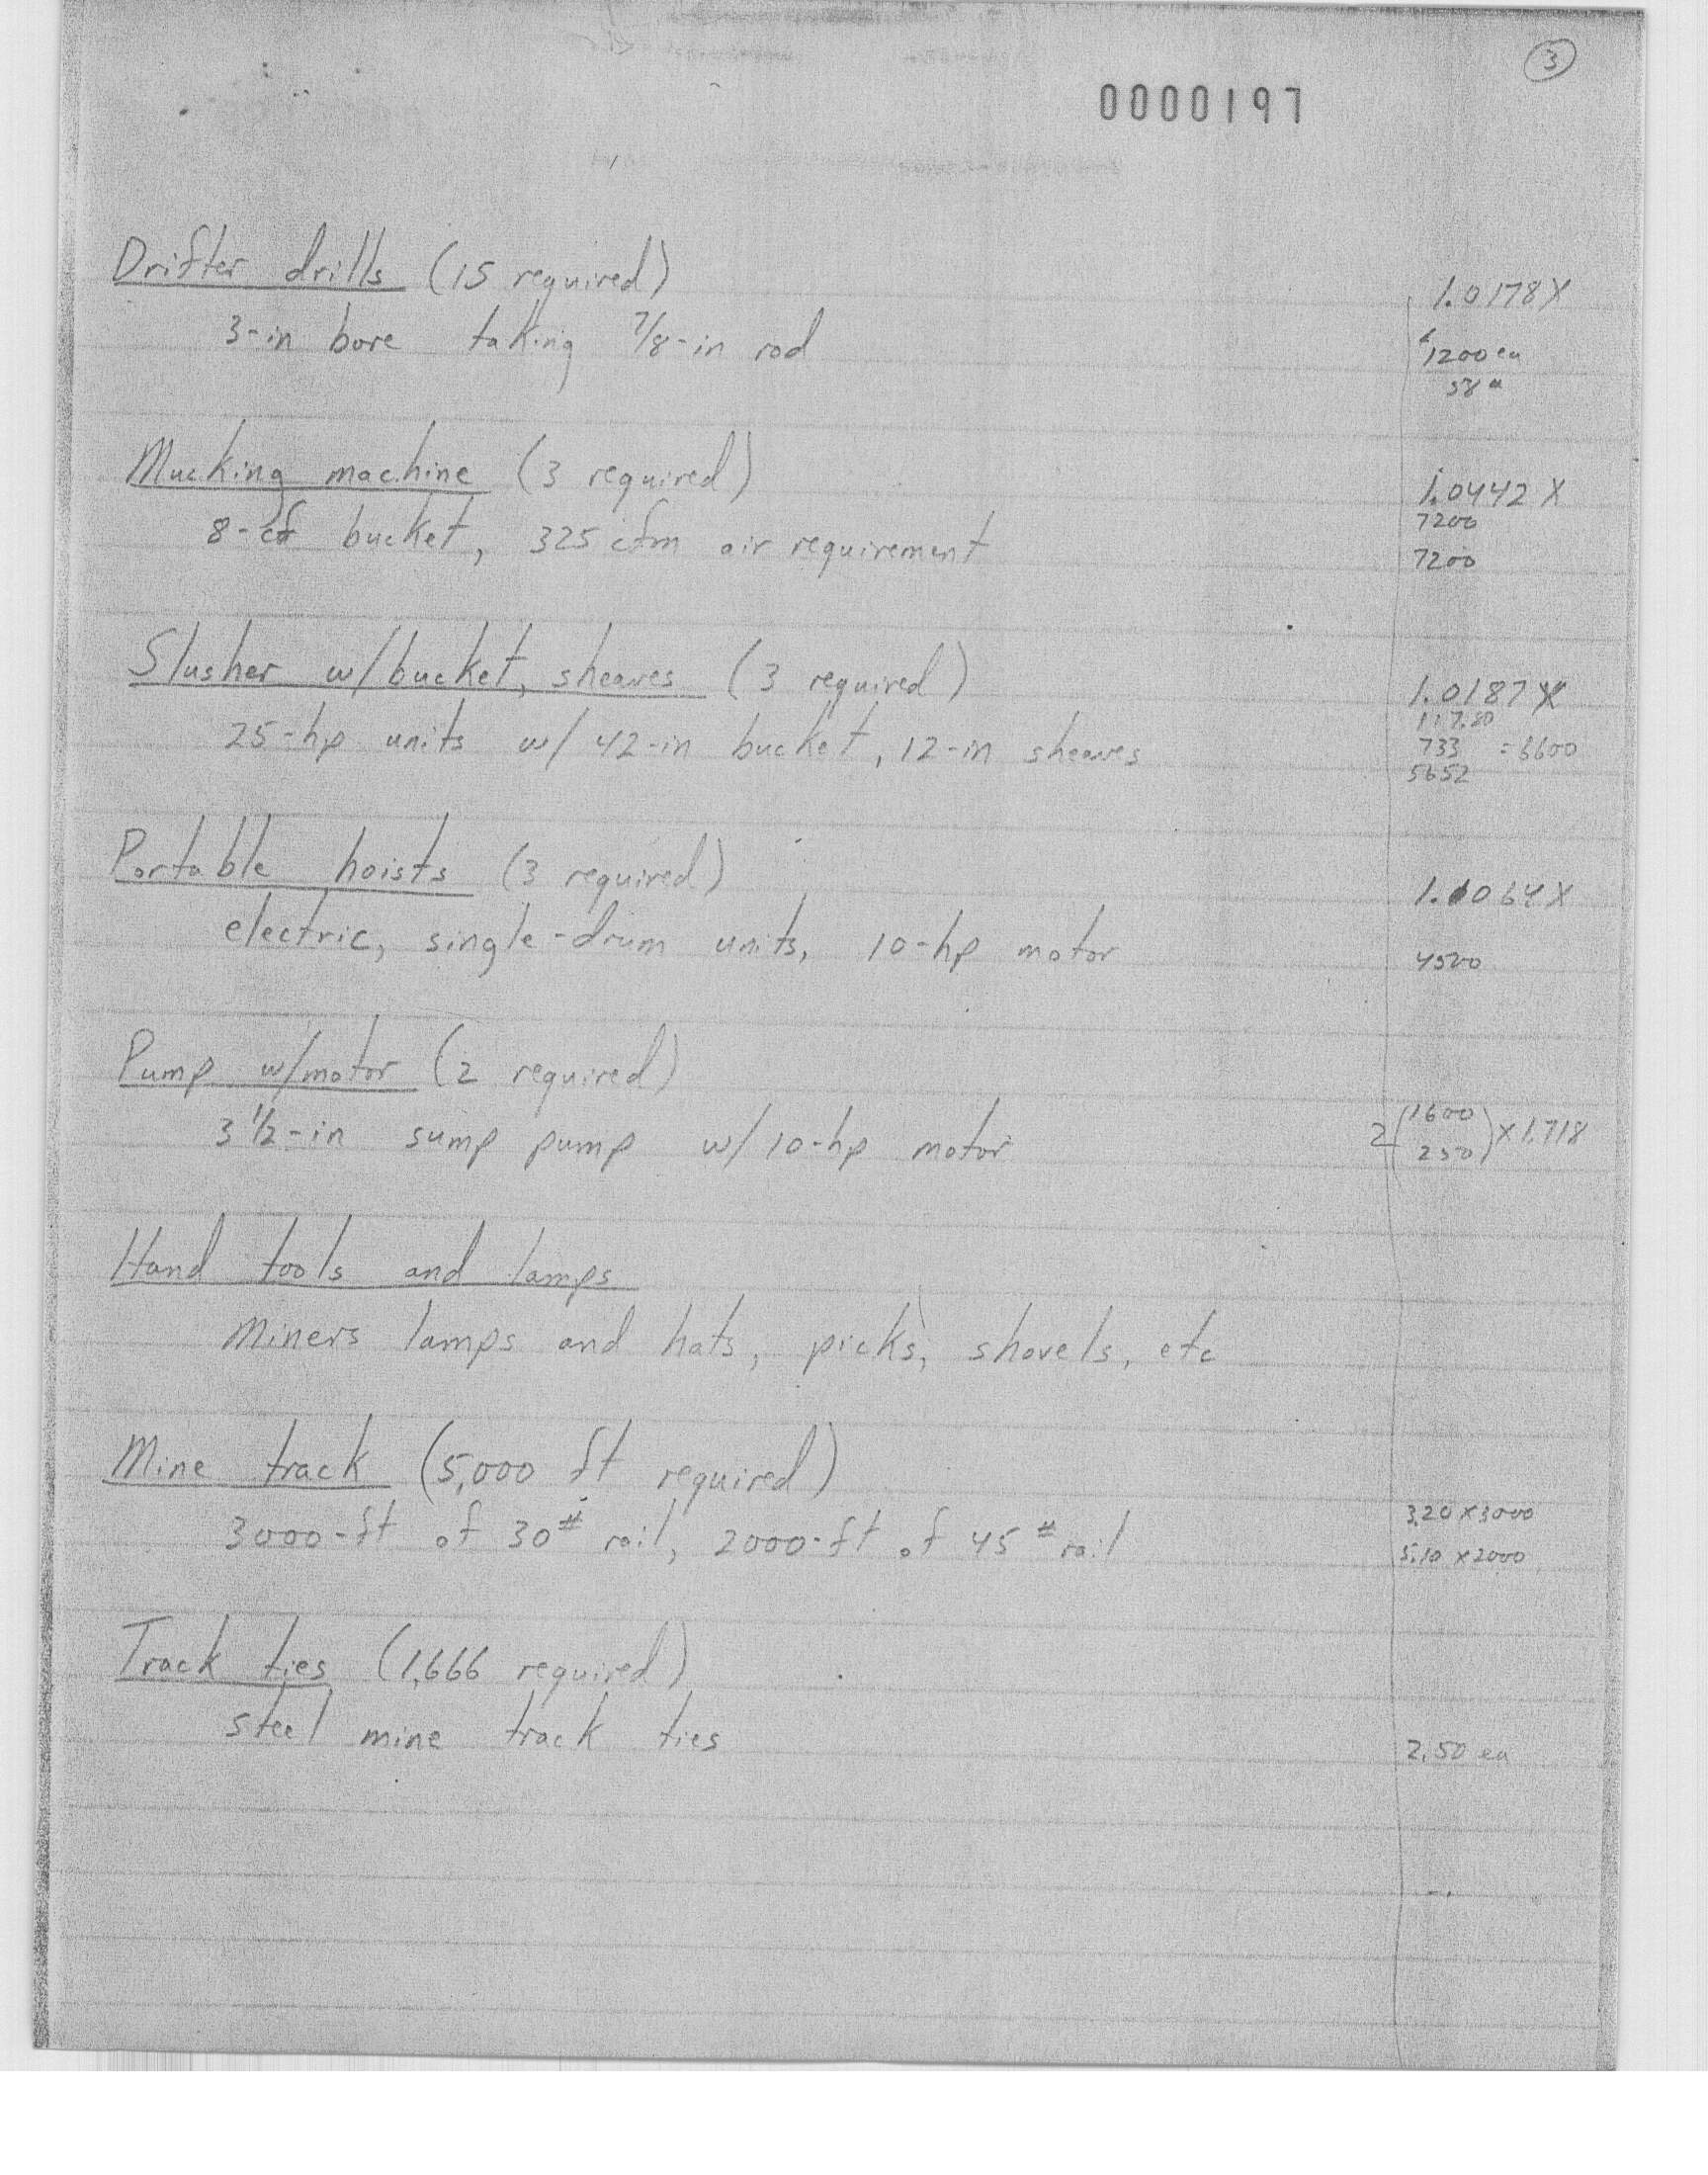 3
0000197
Drifter drills (15 required)
1.0178X
3-in bore taking 7/8-in rod
1200 ea
Mucking machine (3 required)
1.0442 X
7200
8-cf bucket, 325 cfm air requirement
7200
Slusher w/bucket, sheaves (3 required)
1.0187 X
117.80
25-hp units w/ 42-in bucket, 12-in sheaves
733 = 6600
5652
Portable hoists (3 required)
1.0064X
electric, single-drum units, 10-hp motor
4500
Pump w/motor (2 required)
3 1/2-in sump pump w/ 10-hp motor
2(1600
250) x 1.718
Hand tools and lamps
Miners lamps and hats, picks, shovels, etc
Mine track (5,000 ft required)
3.20 x 3000
3000-ft of 30# rail, 2000-ft of 45# rail
5.10 x 2000
Track ties (1,666 required)
steel mine track ties
2.50 ea